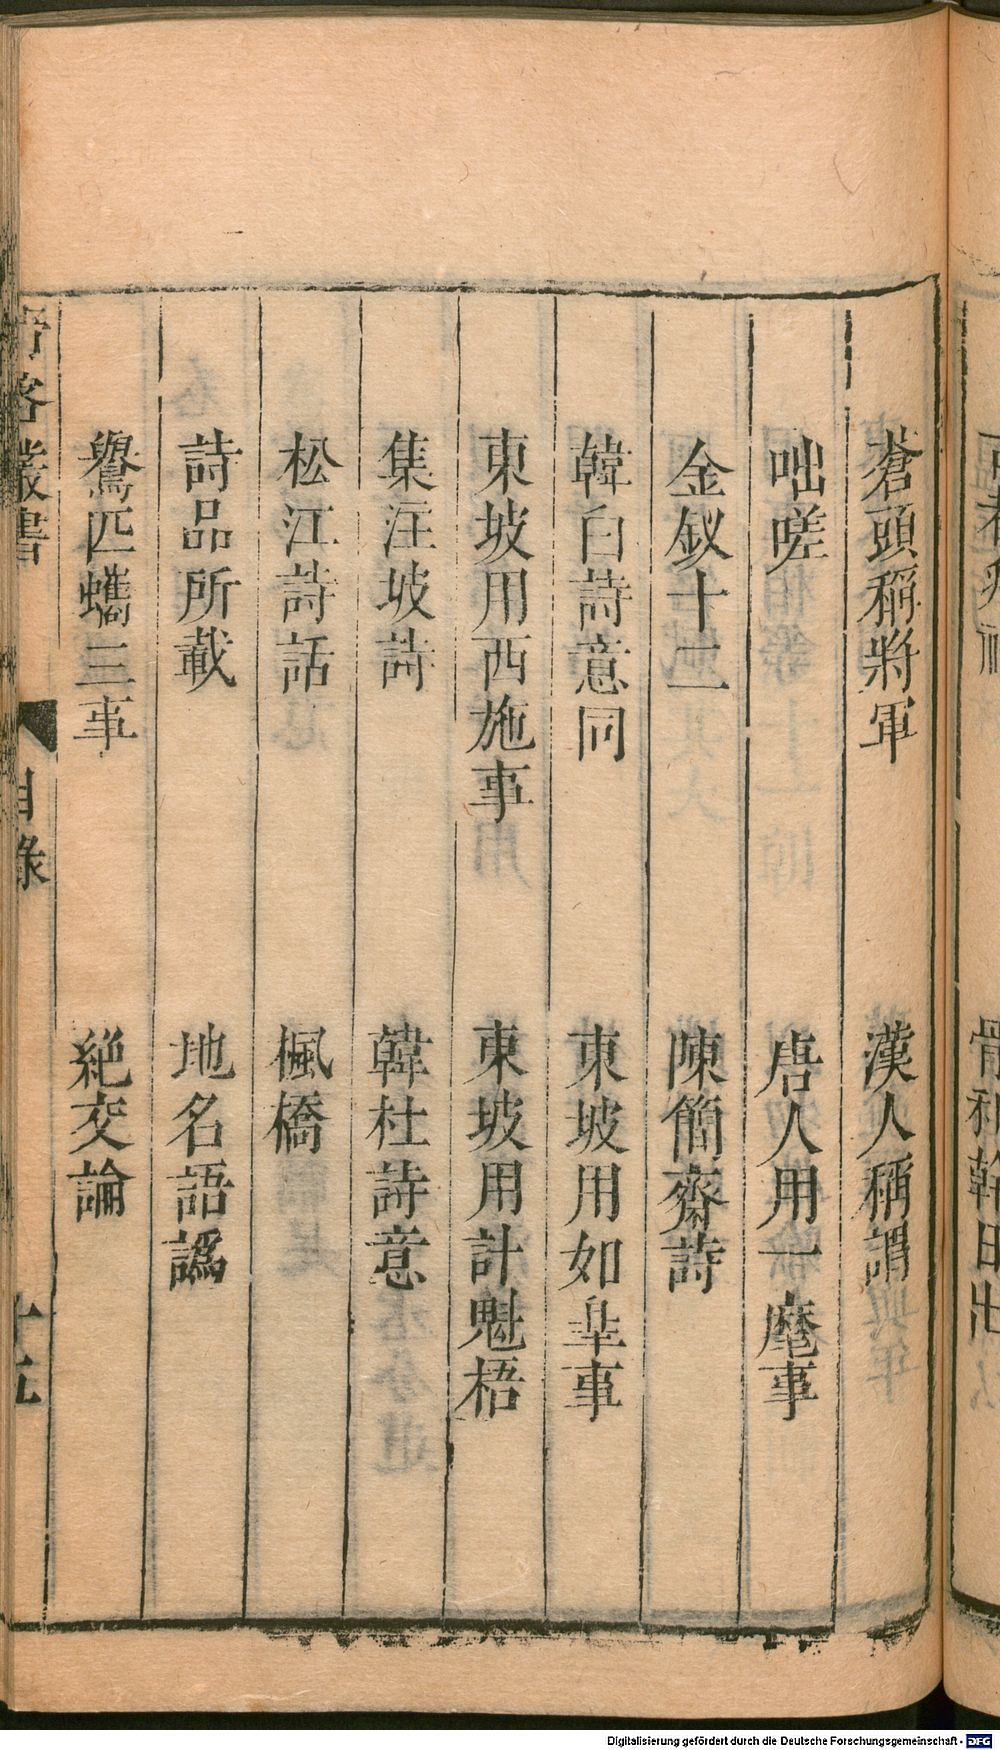 蒼頭稱將軍　漢人稱謂
咄嗟　唐人用一麾事
金釵十二　陳簡齋詩
韓白詩意同　東坡用如臯事
東坡用西施事　東坡用計魁梧
集注坡詩　韓杜詩意
松江詩話　楓橋
詩品所載　地名語譌
匹蠵三事　絕交論
叢書　目錄　十五
Digitalisierung gefördert durch die Deutsche Forschungsgemeinschaft - DFG